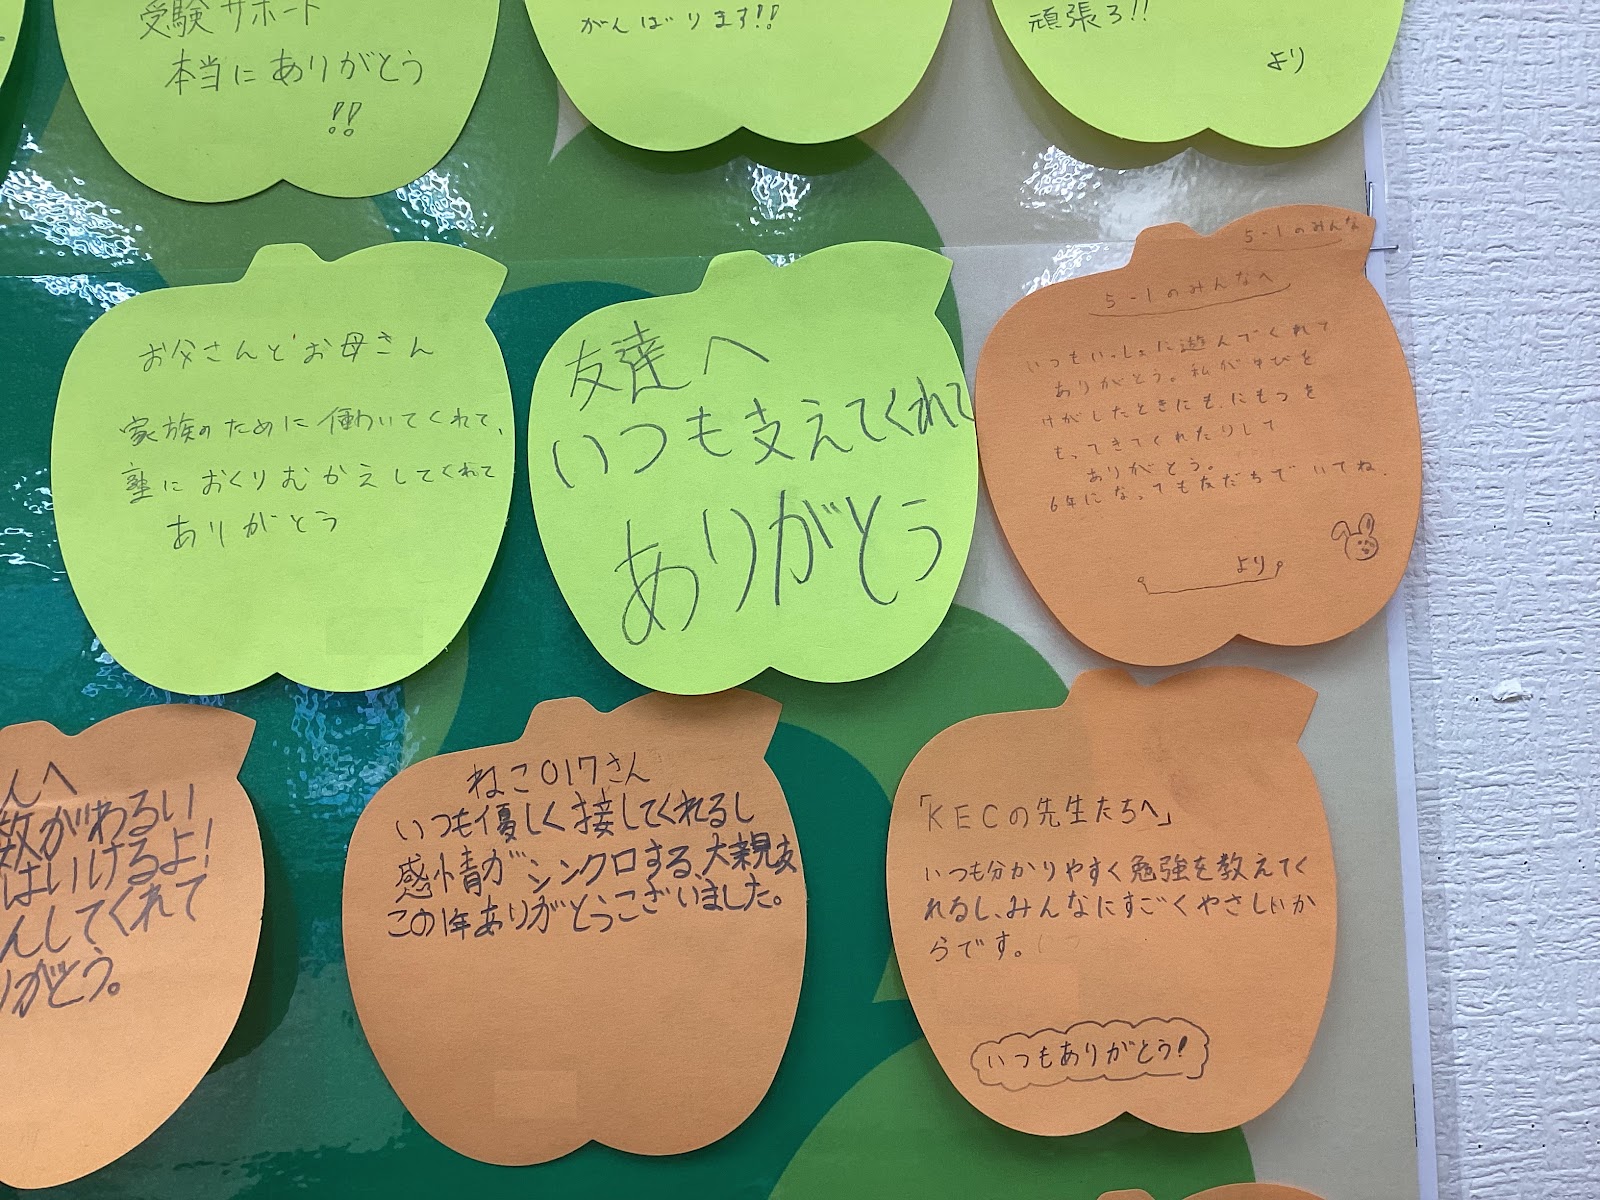 受験サポート
本当にありがとう
!!
がんばります!!
頑張ろ!!
より
お父さんとお母さん
家族のために働いてくれて、
塾におくりむかえしてくれて
ありがとう
友達へ
いつも支えてくれて
ありがとう
5-1のみんな
5-1のみんなへ
いつもいっしょに遊んでくれて
ありがとう。私がゆびを
けがしたときにも、にもつを
もってきてくれたりして
ありがとう。
6年になっても友だちでいてね、
より
んへ
数がわるい
はいけるよ!
んしてくれて
りがとう。
ねこ017さん
いつも優しく接してくれるし
感情がシンクロする、大親友
この1年ありがとうございました。
「KECの先生たちへ」
いつも分かりやすく勉強を教えてく
れるし、みんなにすごくやさしいか
らです。
いつもありがとう!